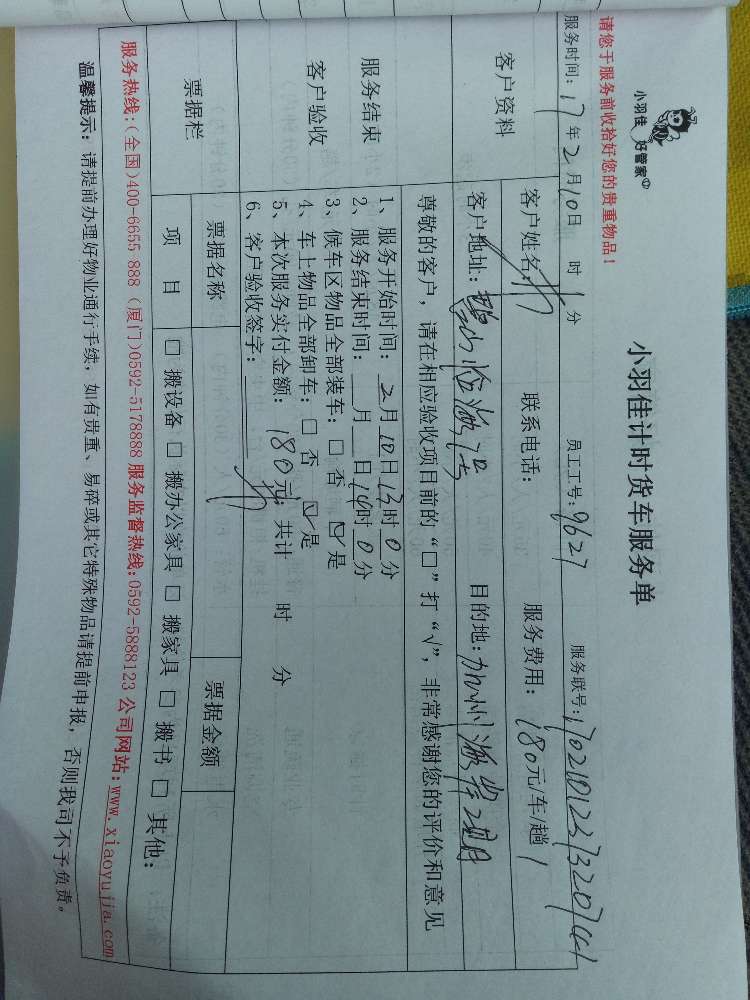 小羽佳 好管家
小羽佳计时货车服务单
请您于服务前收拾好您的贵重物品！
服务时间：17年2月10日 时 分 员工工号：9627 服务联号：
客户资料
客户姓名： 联系电话： 服务费用：180元/车/趟
客户地址：碧山临海 目的地：加州海岸2期
尊敬的客户，请在相应验收项目前的“□”打“√”，非常感谢您的评价和意见
服务结束
客户验收
1、服务开始时间：2月10日13时0分
2、服务结束时间：__月__日14时0分
3、候车区物品全部装车：□ 否 ☑ 是
4、车上物品全部卸车：□ 否 ☑ 是
5、本次服务实付金额：180元；共计 时 分
6、客户验收签字：
票据栏
票据名称 票据金额
项 目 □ 搬设备 □ 搬办公家具 □ 搬家具 □ 搬书 □ 其他：
服务热线：（全国）400-6655 888（厦门）0592-5178888 服务监督热线：0592-5888123 公司网站：www.xiaoyujia.com
温馨提示：请提前办理好物业通行手续，如有贵重、易碎或其它特殊物品请提前申报，否则我司不予负责。